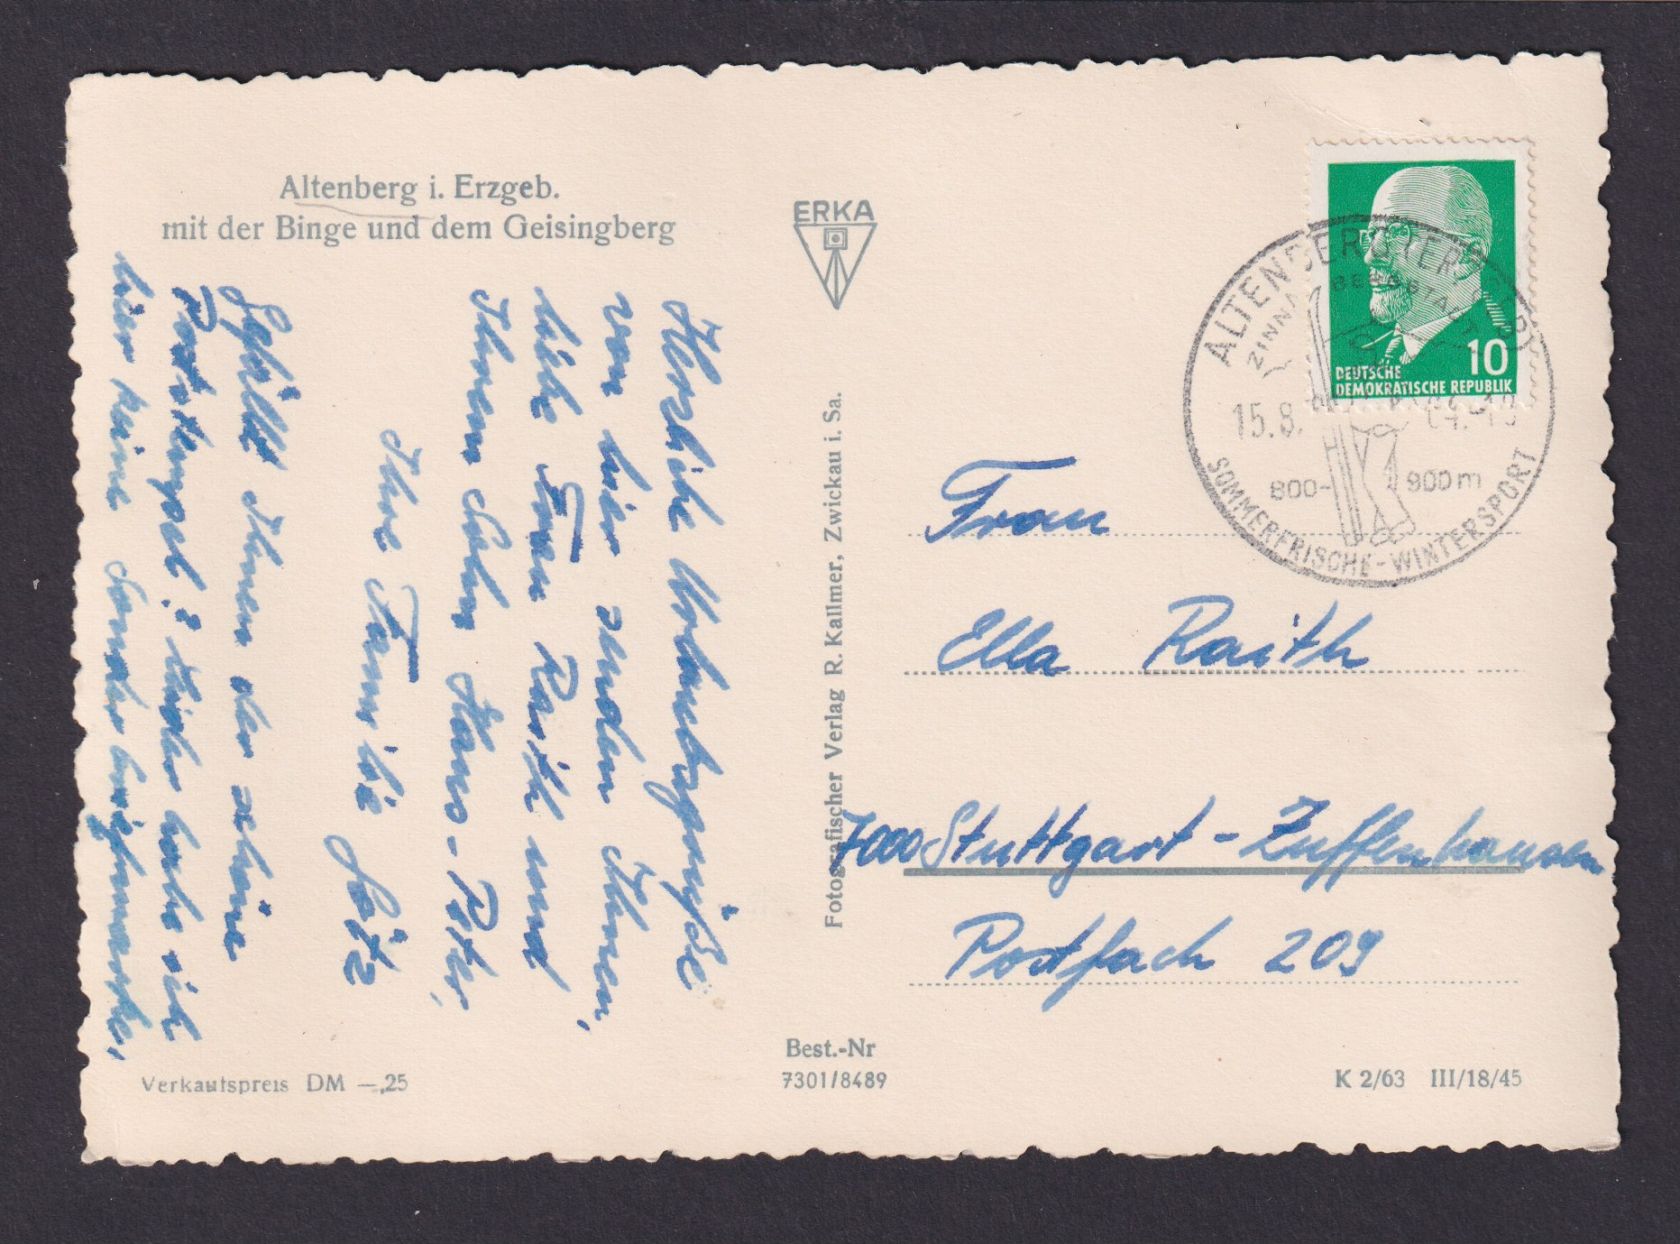 Altenberg i. Erzgeb.
mit der Binge und dem Geisingberg
Herzliche Urlaubsgrüße
von hier senden Ihnen,
liebe Frau Raith und
Ihrem Sohn Hans-Peter,
Ihre Familie Götz
Gefällt Ihnen der schöne
Poststempel? Leider habe ich
hier keine Sonderbriefmarke,
Verkaufspreis DM —,25
ERKA
Fotografischer Verlag R. Kallmer, Zwickau i. Sa.
Best.-Nr
7301/8489
DEUTSCHE
DEMOKRATISCHE REPUBLIK
10
ALTENBERG (ERZGEB)
BERGSTADT
15.8.
800-
900 m
SOMMERFRISCHE - WINTERSPORT
Frau
Ella Raith
7000 Stuttgart - Zuffenhausen
Postfach 209
K 2/63 III/18/45